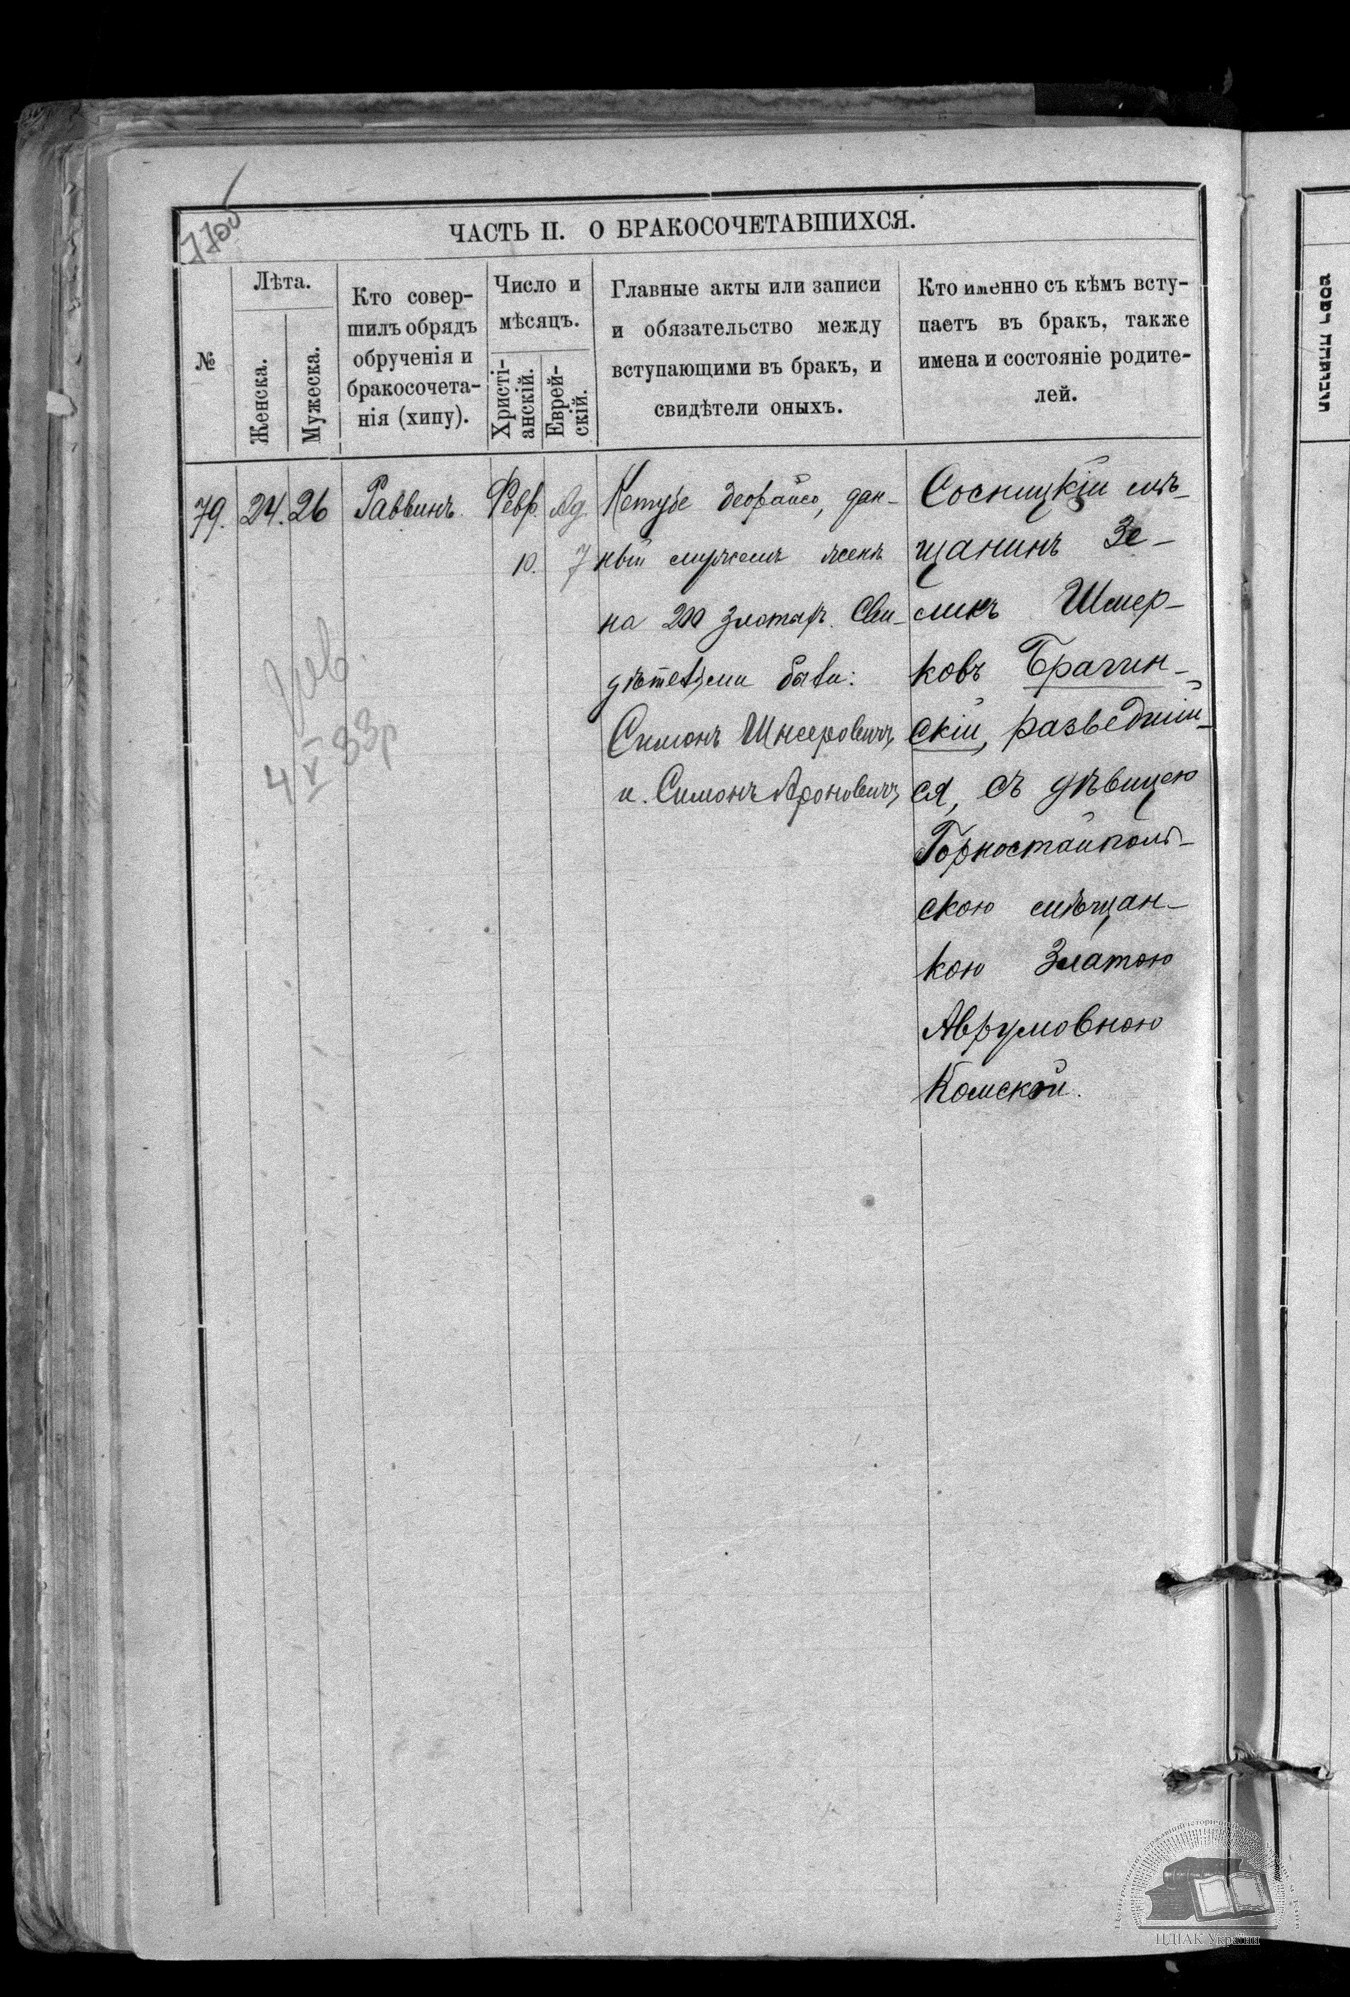 770б
ЧАСТЬ II. О БРАКОСОЧЕТАВШИХСЯ.
№
Лѣта.
Женска.
Мужеска.
Кто совер-
шилъ обрядъ
обрученія и
бракосочета-
нія (хипу).
Число и
мѣсяцъ.
Христі-
анскій.
Еврей-
скій.
Главные акты или записи
и обязательство между
вступающими въ бракъ, и
свидѣтели оныхъ.
Кто именно съ кѣмъ всту-
паетъ въ бракъ, также
имена и состояніе родите-
лей.
79.
24.
26
Раввинъ.
Февр.
10.
Ад
7
Кетубе деорайсо, дан-
ный мужемъ женѣ
на 200 злотыхъ. Сви-
дѣтелями были:
Симонъ
и Симонъ Ароновичъ
Сосницкій мѣ-
щанинъ Зе-
ликъ Шмер-
ковъ Брагин-
скій, разведшій-
ся, съ дѣвицею
Горностайполь-
скою мѣщан-
кою Златою
Аврумовною
Комской.
4 V 33р
ЦДІАК України